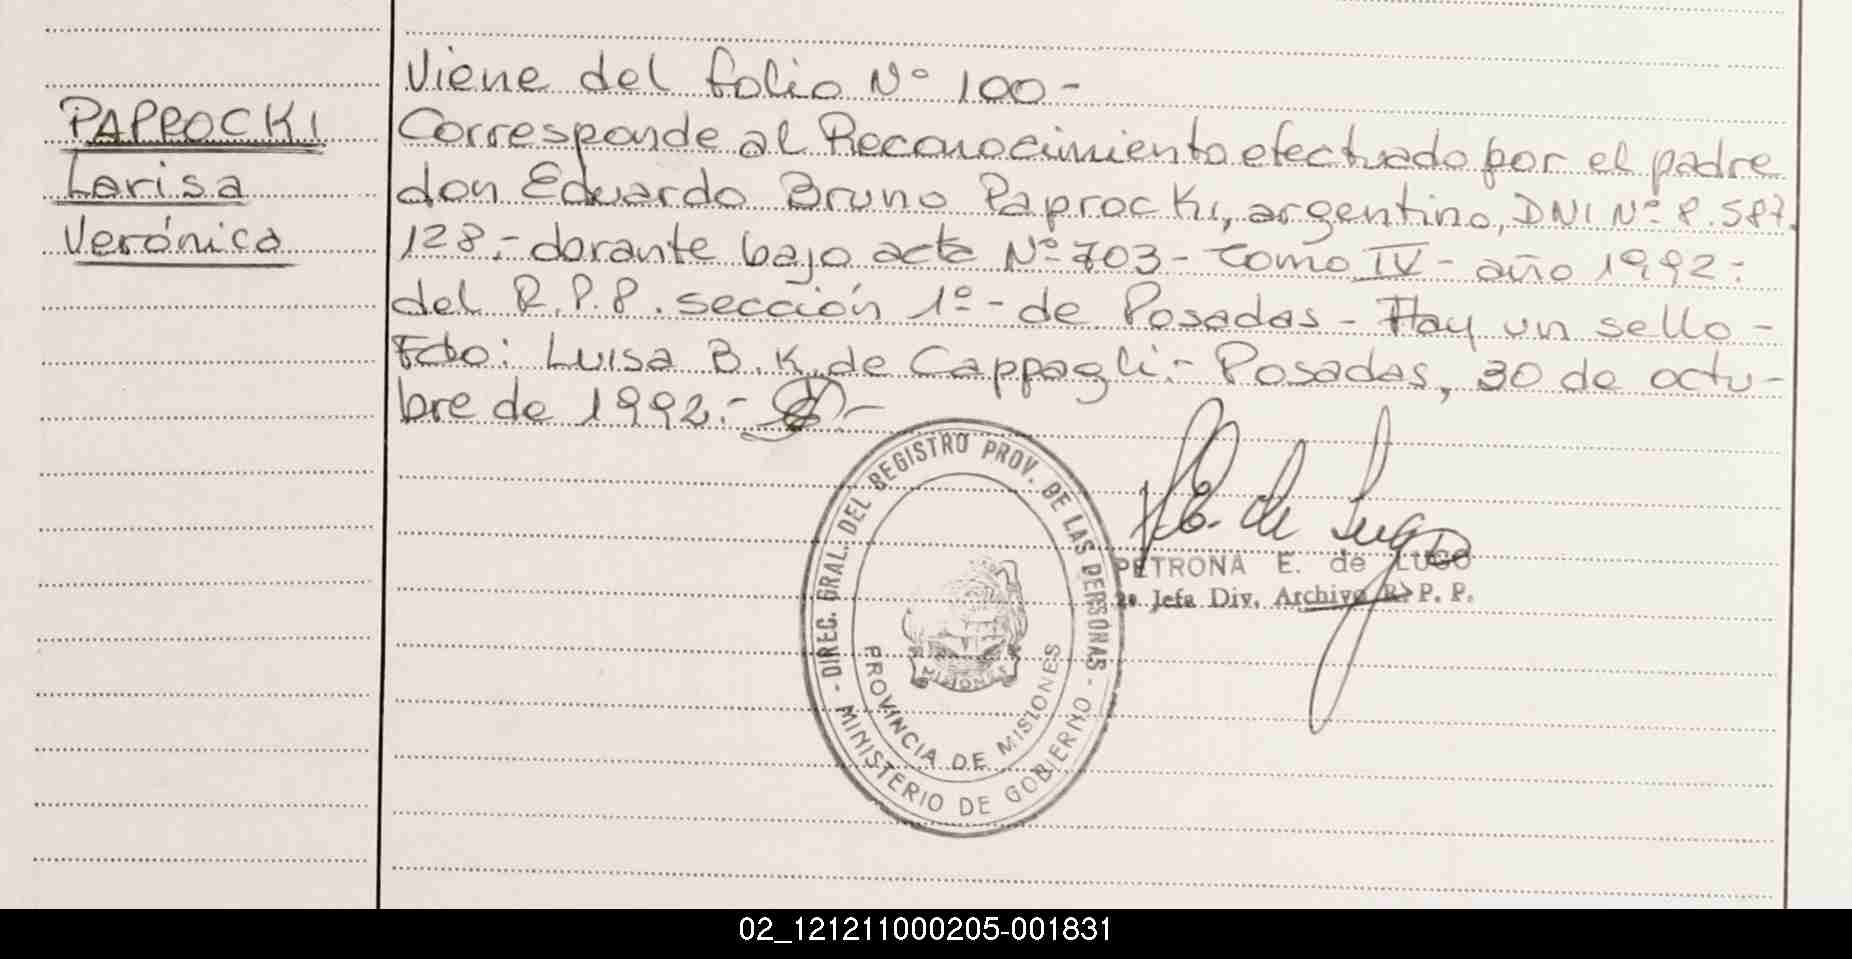 Viene del folio Nº 100-
PAPROCKI
Larisa
Verónica
Corresponde al Reconocimiento efectuado por el padre
don Eduardo Bruno Paprocki, argentino, DNI Nº 8.587.
128.- dorante bajo acta Nº 703- Tomo IV- año 1992-
del R.P.P. sección 1º- de Posadas- Hay un sello-
Fdo: Luisa B. K. de Cappagli.- Posadas, 30 de octu-
bre de 1992.-
DIREC. GRAL. DEL REGISTRO PROV. DE LAS PERSONAS -
MINISTERIO DE GOBIERNO -
PROVINCIA DE MISIONES
MISIONES
P.E. de Lugo
PETRONA E. de LUGO
Jefa Div. Archivo R. P. P.
02_121211000205-001831